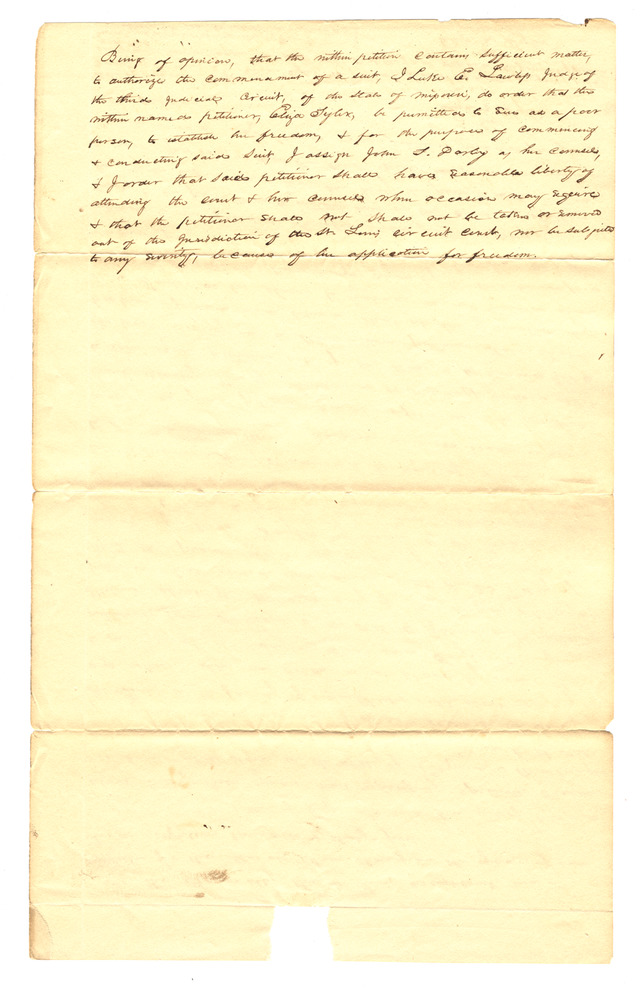 Being of opinion, that the within petition contains sufficient matter,
to authorize the commencement of a suit, I Luke E. Lawless Judge of
the third Judicial Circuit, of the State of Missouri, do order that the
within named petitioner, Eliza Tyler, be permitted to sue as a poor
person, to establish her freedom, & for the purpose of commencing
& conducting said suit, I assign John F. Darby as her counsel,
& I order that said petitioner shall have reasonable liberty of
attending the court & her counsel when occasion may require
& that the petitioner shall not shall not be taken or removed
out of the Jurisdiction of the St. Louis circuit court, nor be subject
to any severity, because of her application for freedom.